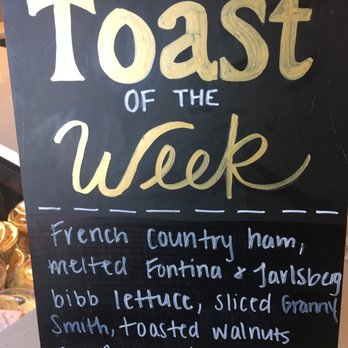 Toast
OF THE
Week
French country ham,
melted Fontina & Jarlsberg
bibb lettuce, sliced Granny
Smith, toasted walnuts